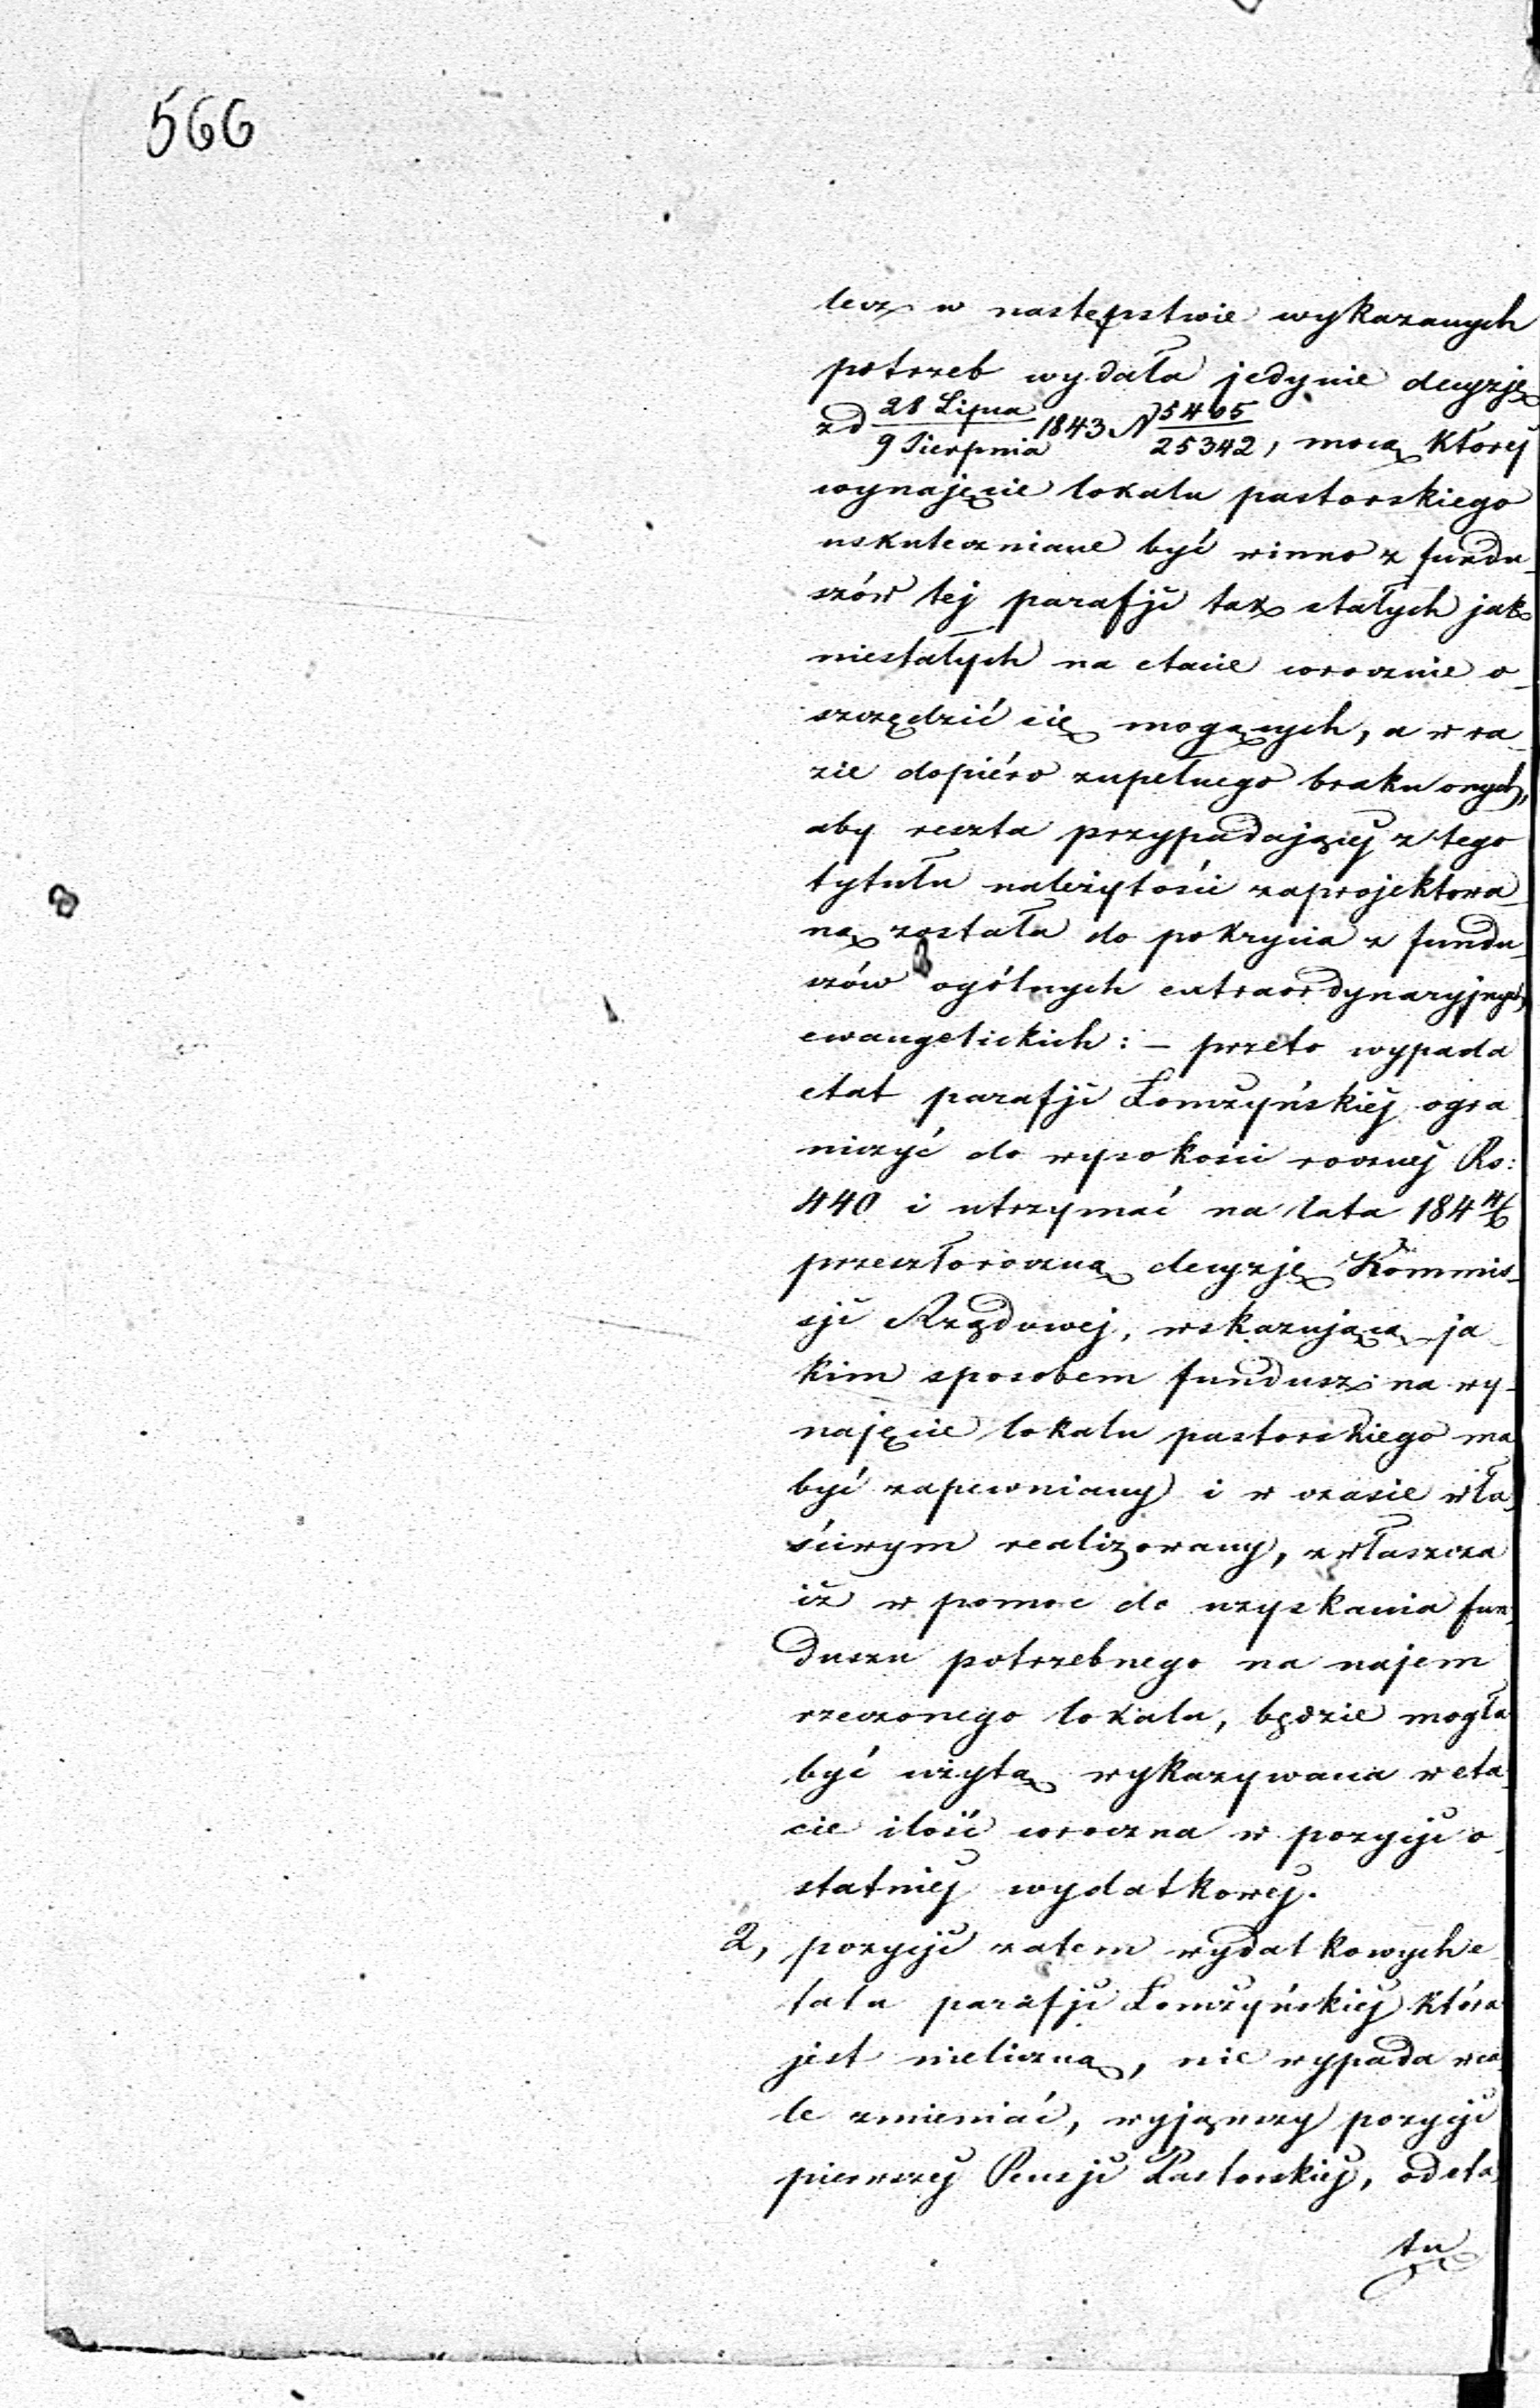 566
lecz w następstwie wykazanych
potrzeb wydała jedynie decyzję
zd 28 Lipca / 9 Sierpnia 1843 N 5465 / 25342, mocą której
wynajęcie lokalu pastorskiego
uskuteczniane być winno z fundu_
szów tej parafji tak stałych jak
niestałych na etacie corocznie o_
szczędzić się mogących, a w ra_
zie dopiéro zupełnego braku onych,
aby reszta przypadającej z tego
tytułu należytości zaprojektowa_
ną została do pokrycia z fundu_
szów ogólnych extraordynaryjnych
ewangelickich: – przeto wypada
etat parafji Łomżyńskiej ogra
niczyć do wysokości rocznej Rs:
440 i utrzymać na lata 184 4/6
przeszłoroczną decyzję Kommis_
sji Rządowej, wskazującą ja_
kim sposobem fundusz na wy_
najęcie lokalu pastorskiego ma
być zapewniany i w czasie wła
ściwym realizowany, zwłaszcza
iż w pomoc do uzyskania fun
duszu potrzebnego na najem
rzeczonego lokalu, będzie mogła
być użytą wykazywana w eta_
cie ilość coroczna w pozycji o_
statniej wydatkowej.
2, pozycji zatem wydatkowych e_
tatu parafji Łomżyńskiej która
jest nieliczną, nie wypada wca_
le zmieniać, wyjąwszy pozycji
pierwszej Pensji Pastorskiej, od eta
tu